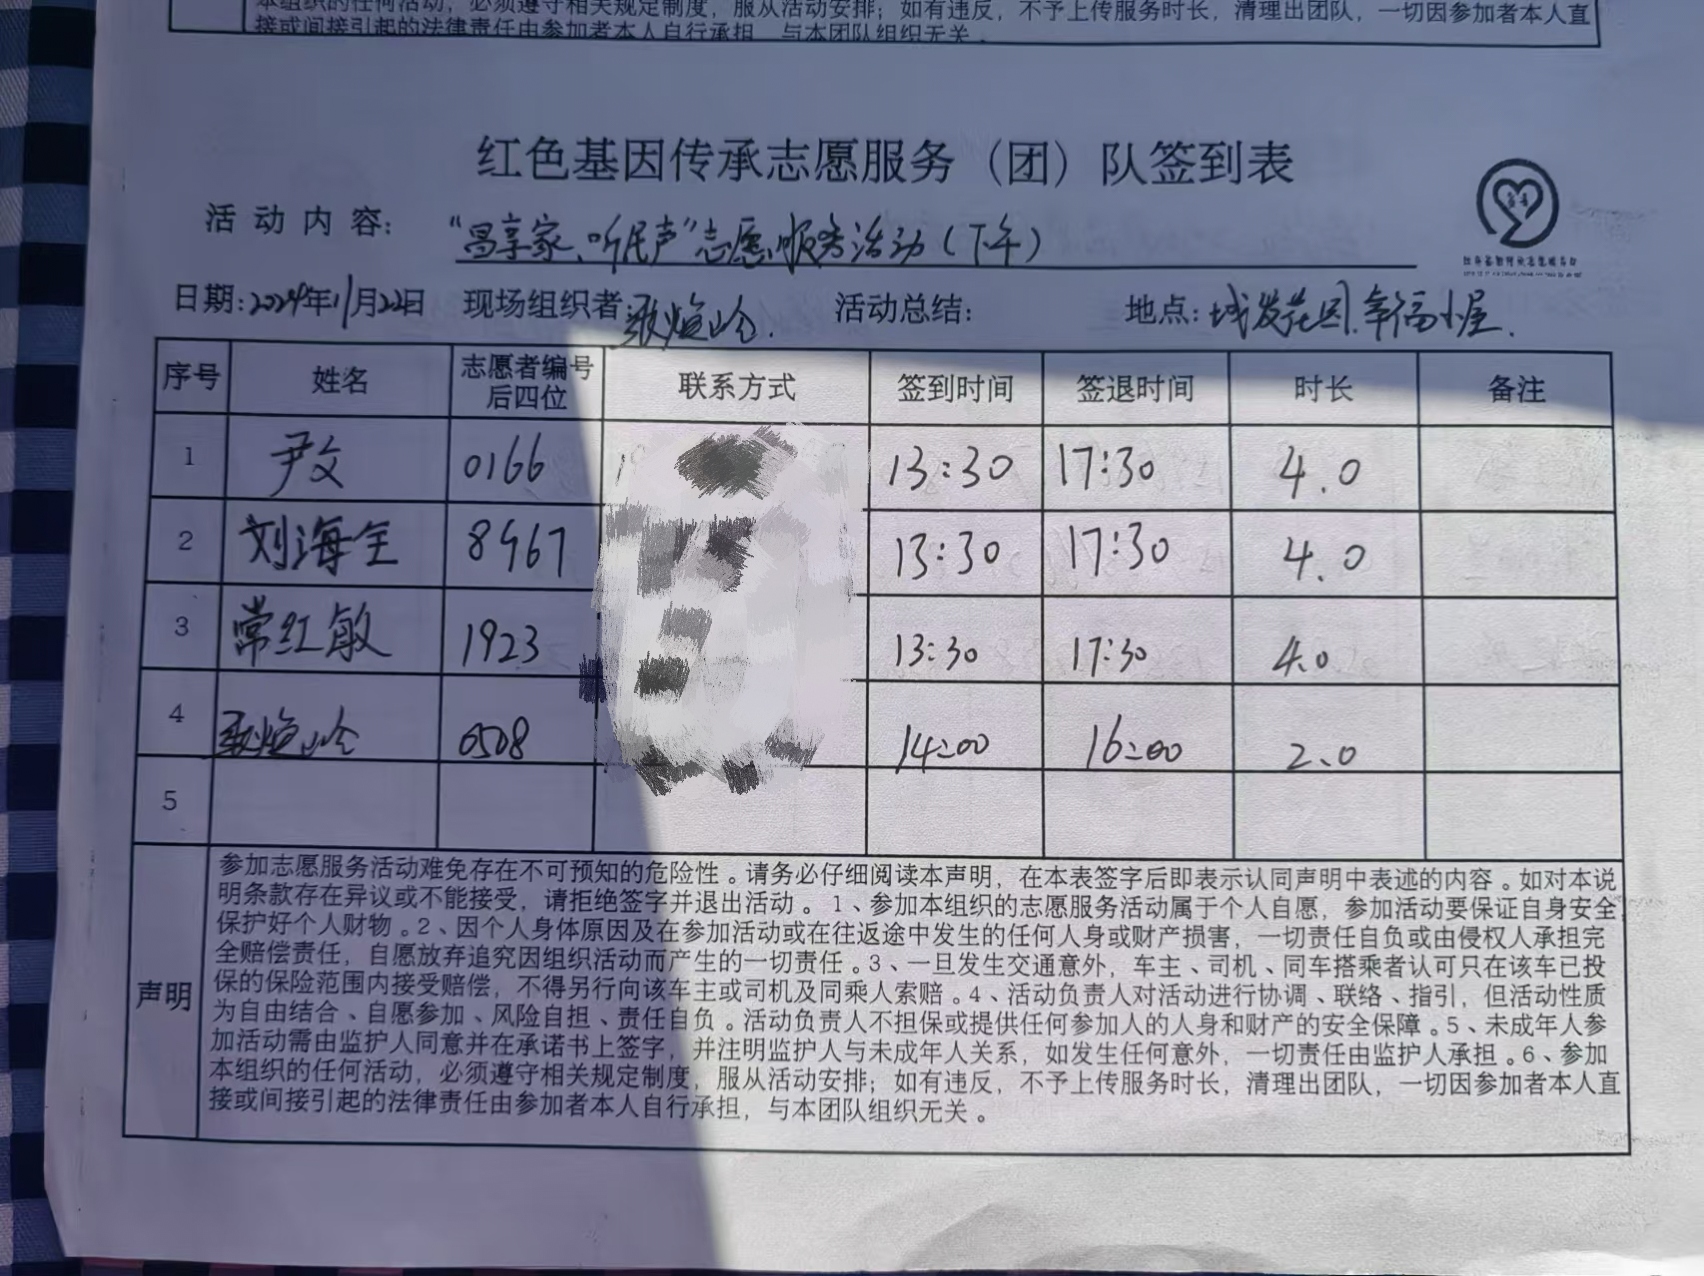 本组织的任何活动，必须遵守相关规定制度，服从活动安排；如有违反，不予上传服务时长，清理出团队，一切因参加者本人直
接或间接引起的法律责任由参加者本人自行承担，与本团队组织无关。
红色基因传承志愿服务（团）队签到表
活动内容：“昌享家、听民声”志愿服务活动（下午）
日期：2024年11月22日 现场组织者： 活动总结： 地点：城发花园.幸福小屋.
序号 姓名 志愿者编号后四位 联系方式 签到时间 签退时间 时长 备注
1 尹文 0166 13:30 17:30 4.0
2 刘海全 8967 13:30 17:30 4.0
3 常红敏 1923 13:30 17:30 4.0
4 0508 14:00 16:00 2.0
5
声明
参加志愿服务活动难免存在不可预知的危险性。请务必仔细阅读本声明，在本表签字后即表示认同声明中表述的内容。如对本说
明条款存在异议或不能接受，请拒绝签字并退出活动。1、参加本组织的志愿服务活动属于个人自愿，参加活动要保证自身安全，
保护好个人财物。2、因个人身体原因及在参加活动或在往返途中发生的任何人身或财产损害，一切责任自负或由侵权人承担完
全赔偿责任，自愿放弃追究因组织活动而产生的一切责任。3、一旦发生交通意外，车主、司机、同车搭乘者认可只在该车已投
保的保险范围内接受赔偿，不得另行向该车主或司机及同乘人索赔。4、活动负责人对活动进行协调、联络、指引，但活动性质
为自由结合、自愿参加、风险自担、责任自负。活动负责人不担保或提供任何参加人的人身和财产的安全保障。5、未成年人参
加活动需由监护人同意并在承诺书上签字，并注明监护人与未成年人关系，如发生任何意外，一切责任由监护人承担。6、参加
本组织的任何活动，必须遵守相关规定制度，服从活动安排；如有违反，不予上传服务时长，清理出团队，一切因参加者本人直
接或间接引起的法律责任由参加者本人自行承担，与本团队组织无关。